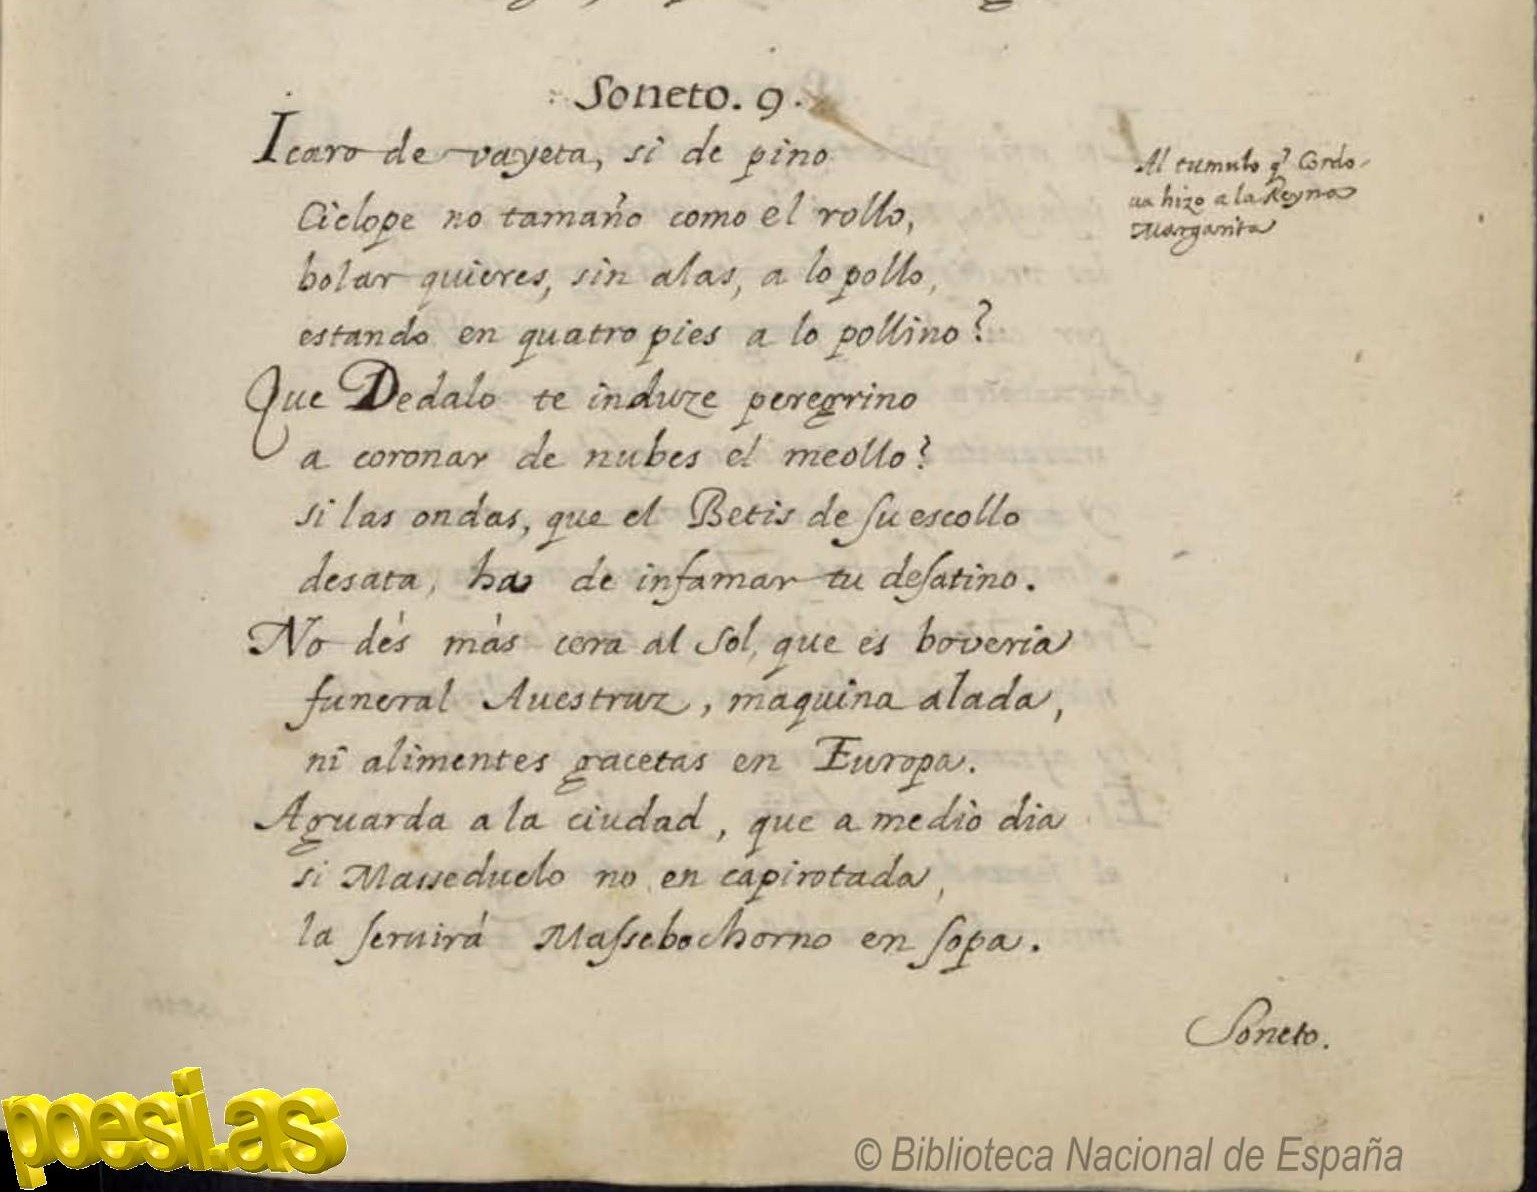 Soneto. 9.
Icaro de vayeta, si de pino
Ciclope no tamaño como el rollo,
bolar quieres, sin alas, a lo pollo,
estando en quatro pies a lo pollino?
Que Dedalo te induze peregrino
a coronar de nubes el meollo?
si las ondas, que el Betis de su escollo
desata, ha de infamar tu desatino.
No dés más cera al Sol, que es boveria
funeral Auestruz, maquina alada,
ni alimentes gacetas en Europa.
Aguarda a la ciudad, que a medio dia
si Masseduelo no en capirotada,
la seruirá Massebochorno en sopa.
Al tumulo q̃ Cordo-
ua hizo a la Reyna
Margarita
Soneto.
poesi.as
© Biblioteca Nacional de España